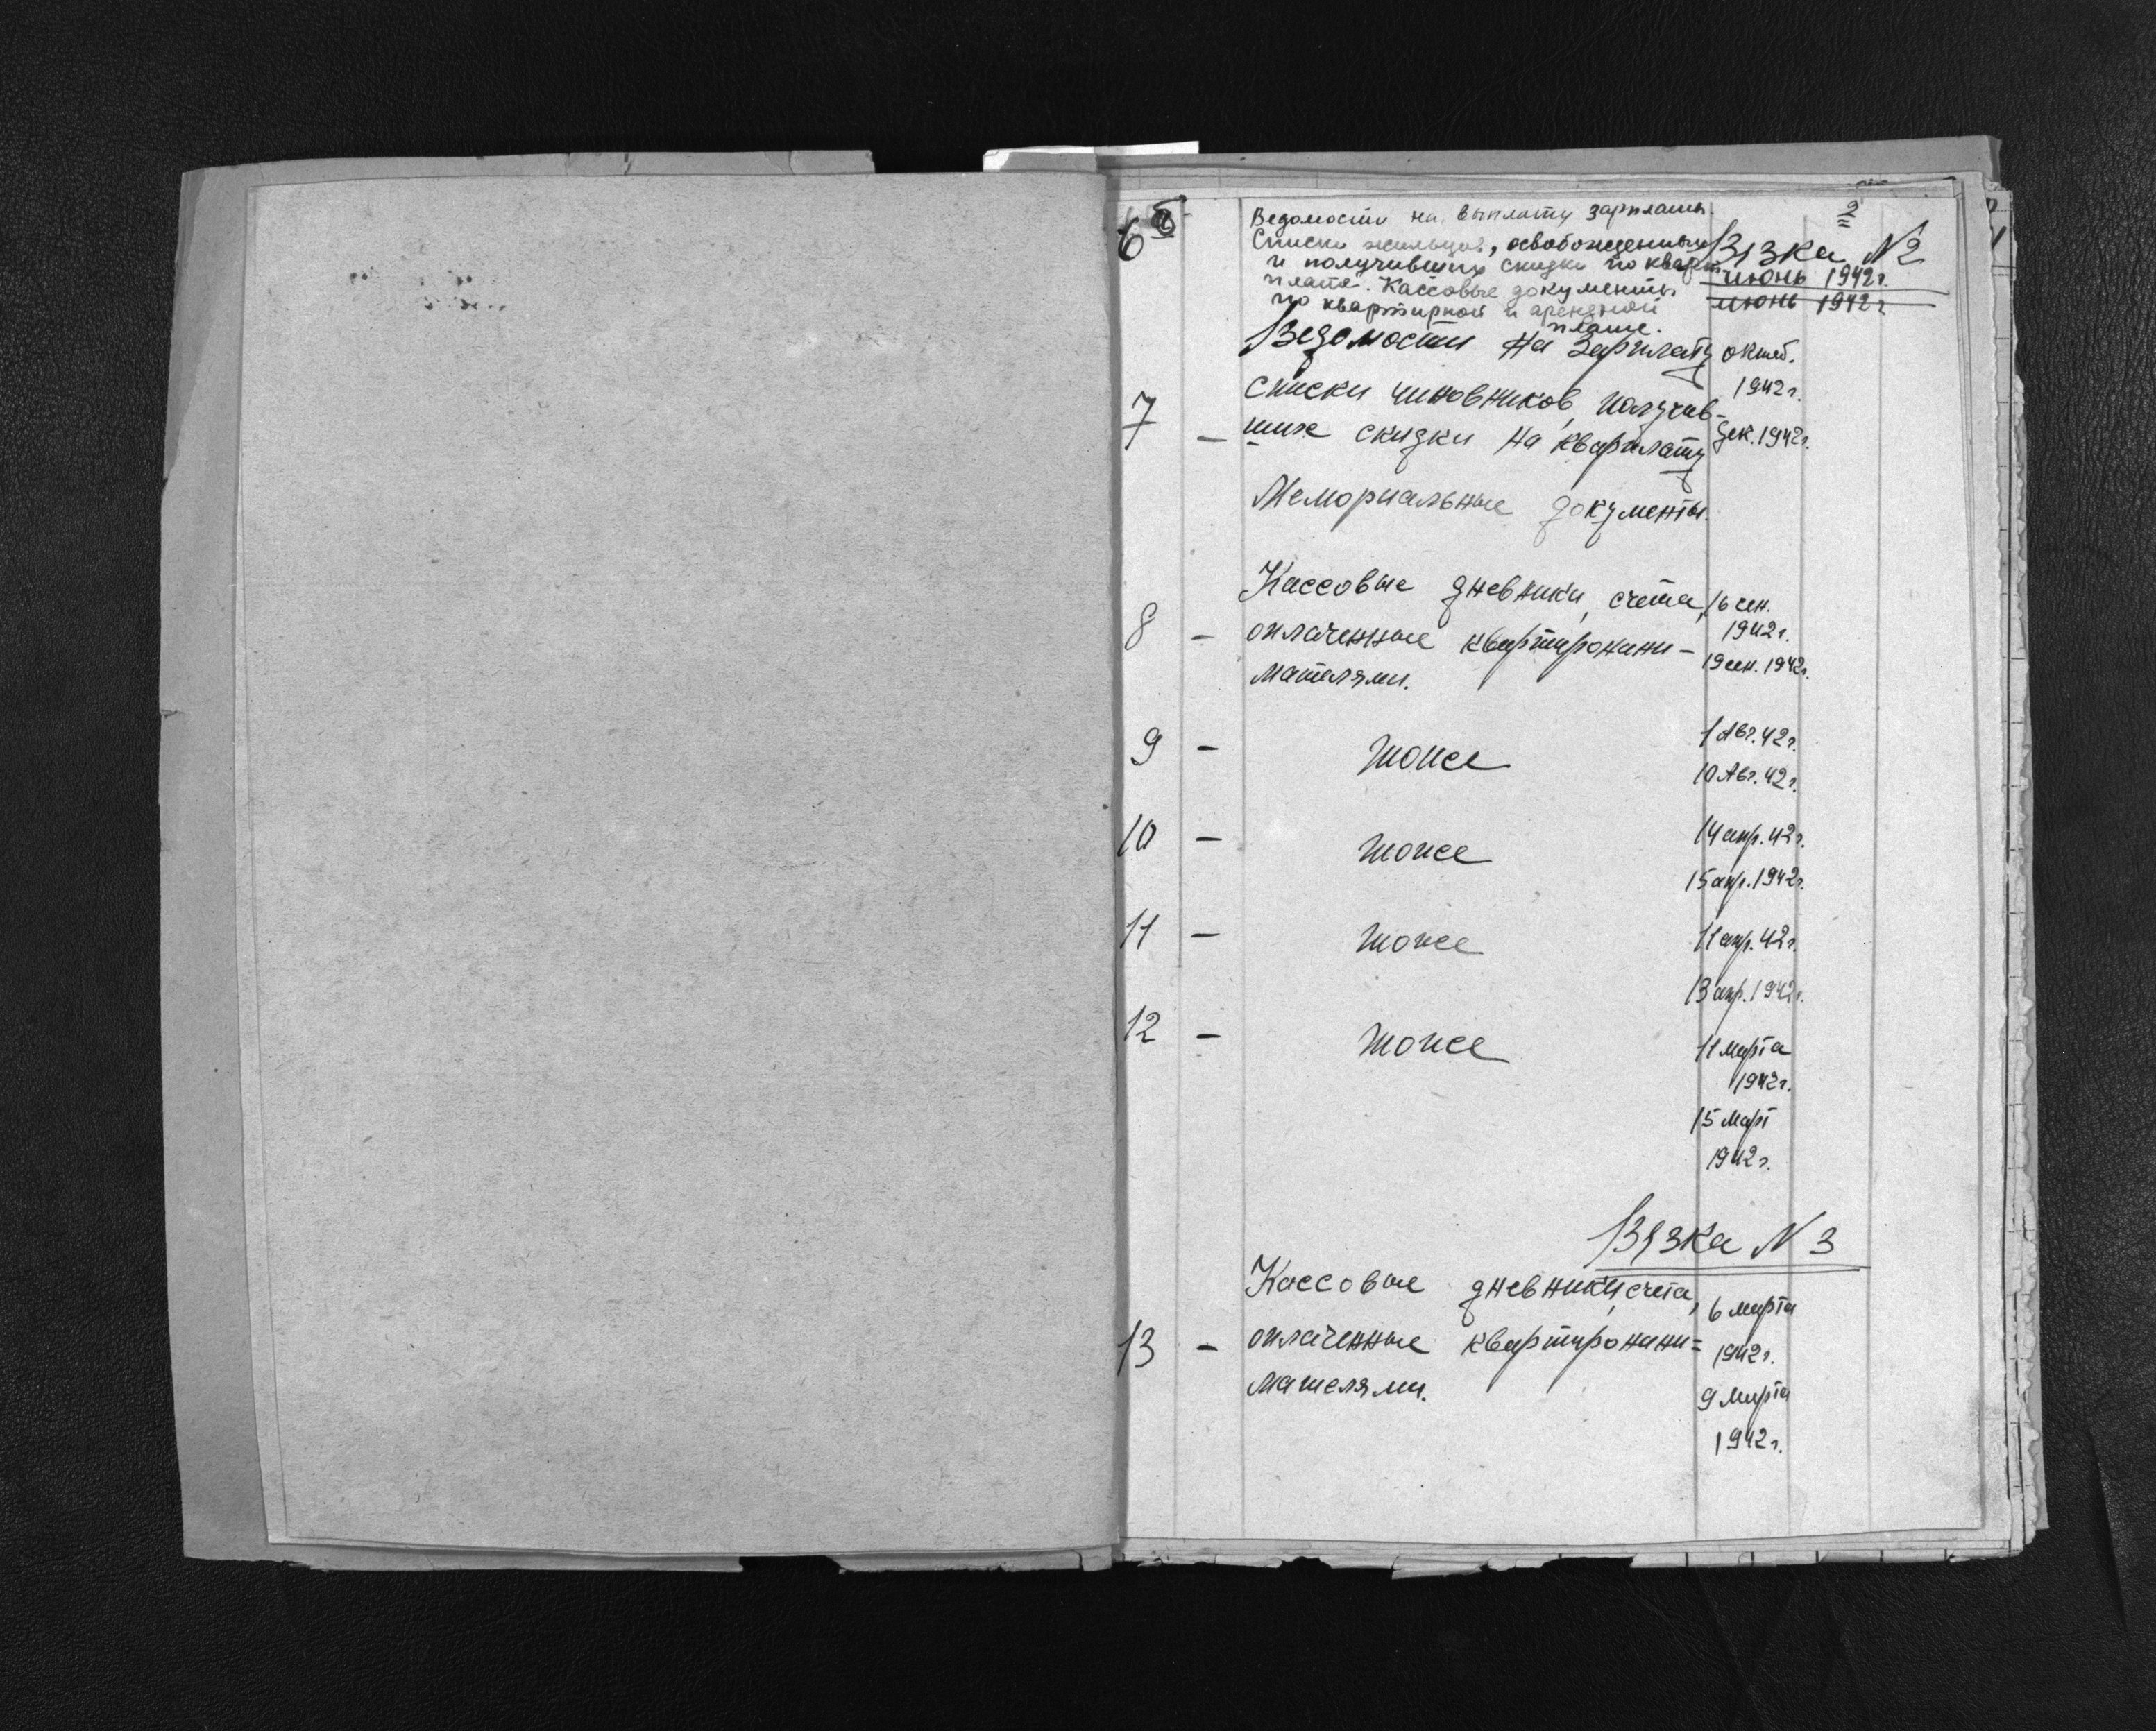 2
6а
Ведомости на выплату зарплаты.
Списки жильцов, освобожденных
и получивших скидки по кварт.
плате. Кассовые документы
по квартирной и арендной
плате.
Вязка N2
июнь 1942г.
июнь 1942г
Ведомости на зарплату октяб.
1942г.
7 — Списки чиновников, получив-
ших скидки на квартплату дек. 1942г.
Мемориальные документы.
Кассовые дневники, счета, 16 сен.
1942г.
8 — оплаченные квартиронани-
19 сен. 1942г.
мателями.
9 — тоже 1 Авг. 42г.
10 Авг. 42г.
10 — тоже 14 апр. 42г.
15 апр. 1942г.
11 — тоже 11 апр. 42г.
13 апр. 1942г.
12 — тоже 11 марта
1942г.
15 март
1942г.
Вязка N 3
Кассовые дневники, счета, 6 марта
13 — оплаченные квартиронани= 1942г.
мателями. 9 марта
1942г.